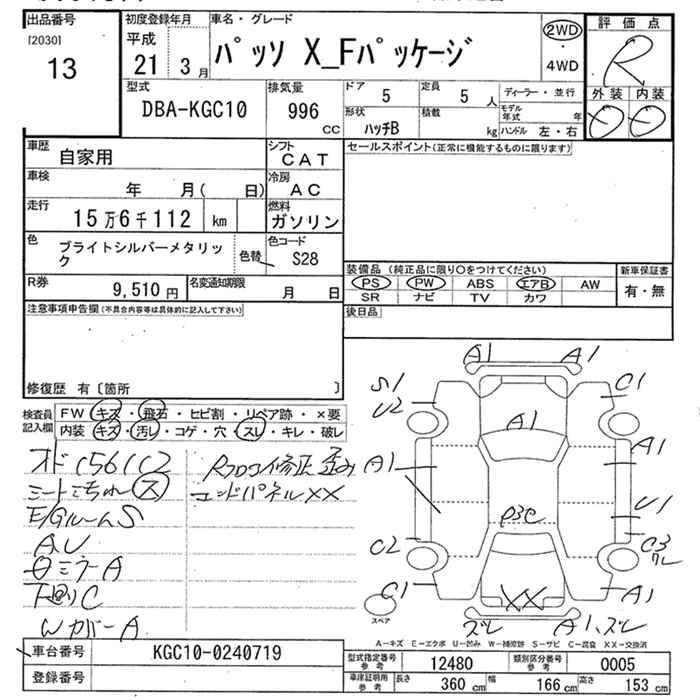 出品番号
[2030]
13
初度登録年月
平成
21 3月
車名・グレード
ﾊﾟｯｿ X_Fﾊﾟｯｹｰｼﾞ
2WD
・
4WD
評価点
R
外装 内装
D D
型式
DBA-KGC10
排気量
996
CC
ドア
5
定員
5 人
ディーラー・並行
形状
ﾊｯﾁB
積載
kg
モデル年式 年
ハンドル 左・右
車歴
自家用
シフト
CAT
セールスポイント(正常に機能するものに限ります)
車検
年 月( 日)
冷房
AC
走行
15万6千112 km
燃料
ガソリン
色
ブライトシルバーメタリック
色替
色コード
S28
R券
9,510円
名変通知期限
月 日
装備品 (純正品に限り○をつけてください)
新車保証書
PS PW ABS エアB AW
有・無
SR ナビ TV カワ
後日品
注意事項申告欄(不具合内容等は具体的に記入して下さい)
修復歴 有〔箇所 〕
検査員記入欄
FW キズ・飛石・ヒビ割・リペア跡・×要
内装 キズ・汚レ・コゲ・穴・スレ・キレ・破レ
E/GルームS
AU
ミラーA
下廻りC
WカバーA
コンドパネルXX
A1 A1
S1 C1
U2
A1
A1 A1
U1
C2 C3
C1 A1
XX
ズレ A1、ズレ
スペア
A－キズ E－エクボ U－凹み W－補修跡 S－サビ C－腐食 XX－交換済
車台番号
KGC10-0240719
登録番号
型式指定番号 参考
12480
類別区分番号 参考
0005
車庫証明用 参考
長さ 360 cm 幅 166 cm 高さ 153 cm